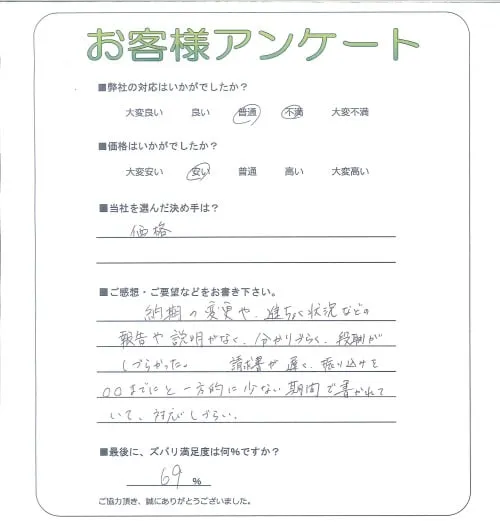 お客様アンケート
■弊社の対応はいかがでしたか？
大変良い 良い 普通 不満 大変不満
■価格はいかがでしたか？
大変安い 安い 普通 高い 大変高い
■当社を選んだ決め手は？
価格
■ご感想・ご要望などをお書き下さい。
納期の変更や、進ちょく状況などの
報告や説明がなく、分かりづらく、段取が
しづらかった。 請求書が遅く、振り込けを
○○までにと一方的に少ない期間で書かれて
いて、対応しづらい。
■最後に、ズバリ満足度は何%ですか？
69 %
ご協力頂き、誠にありがとうございました。